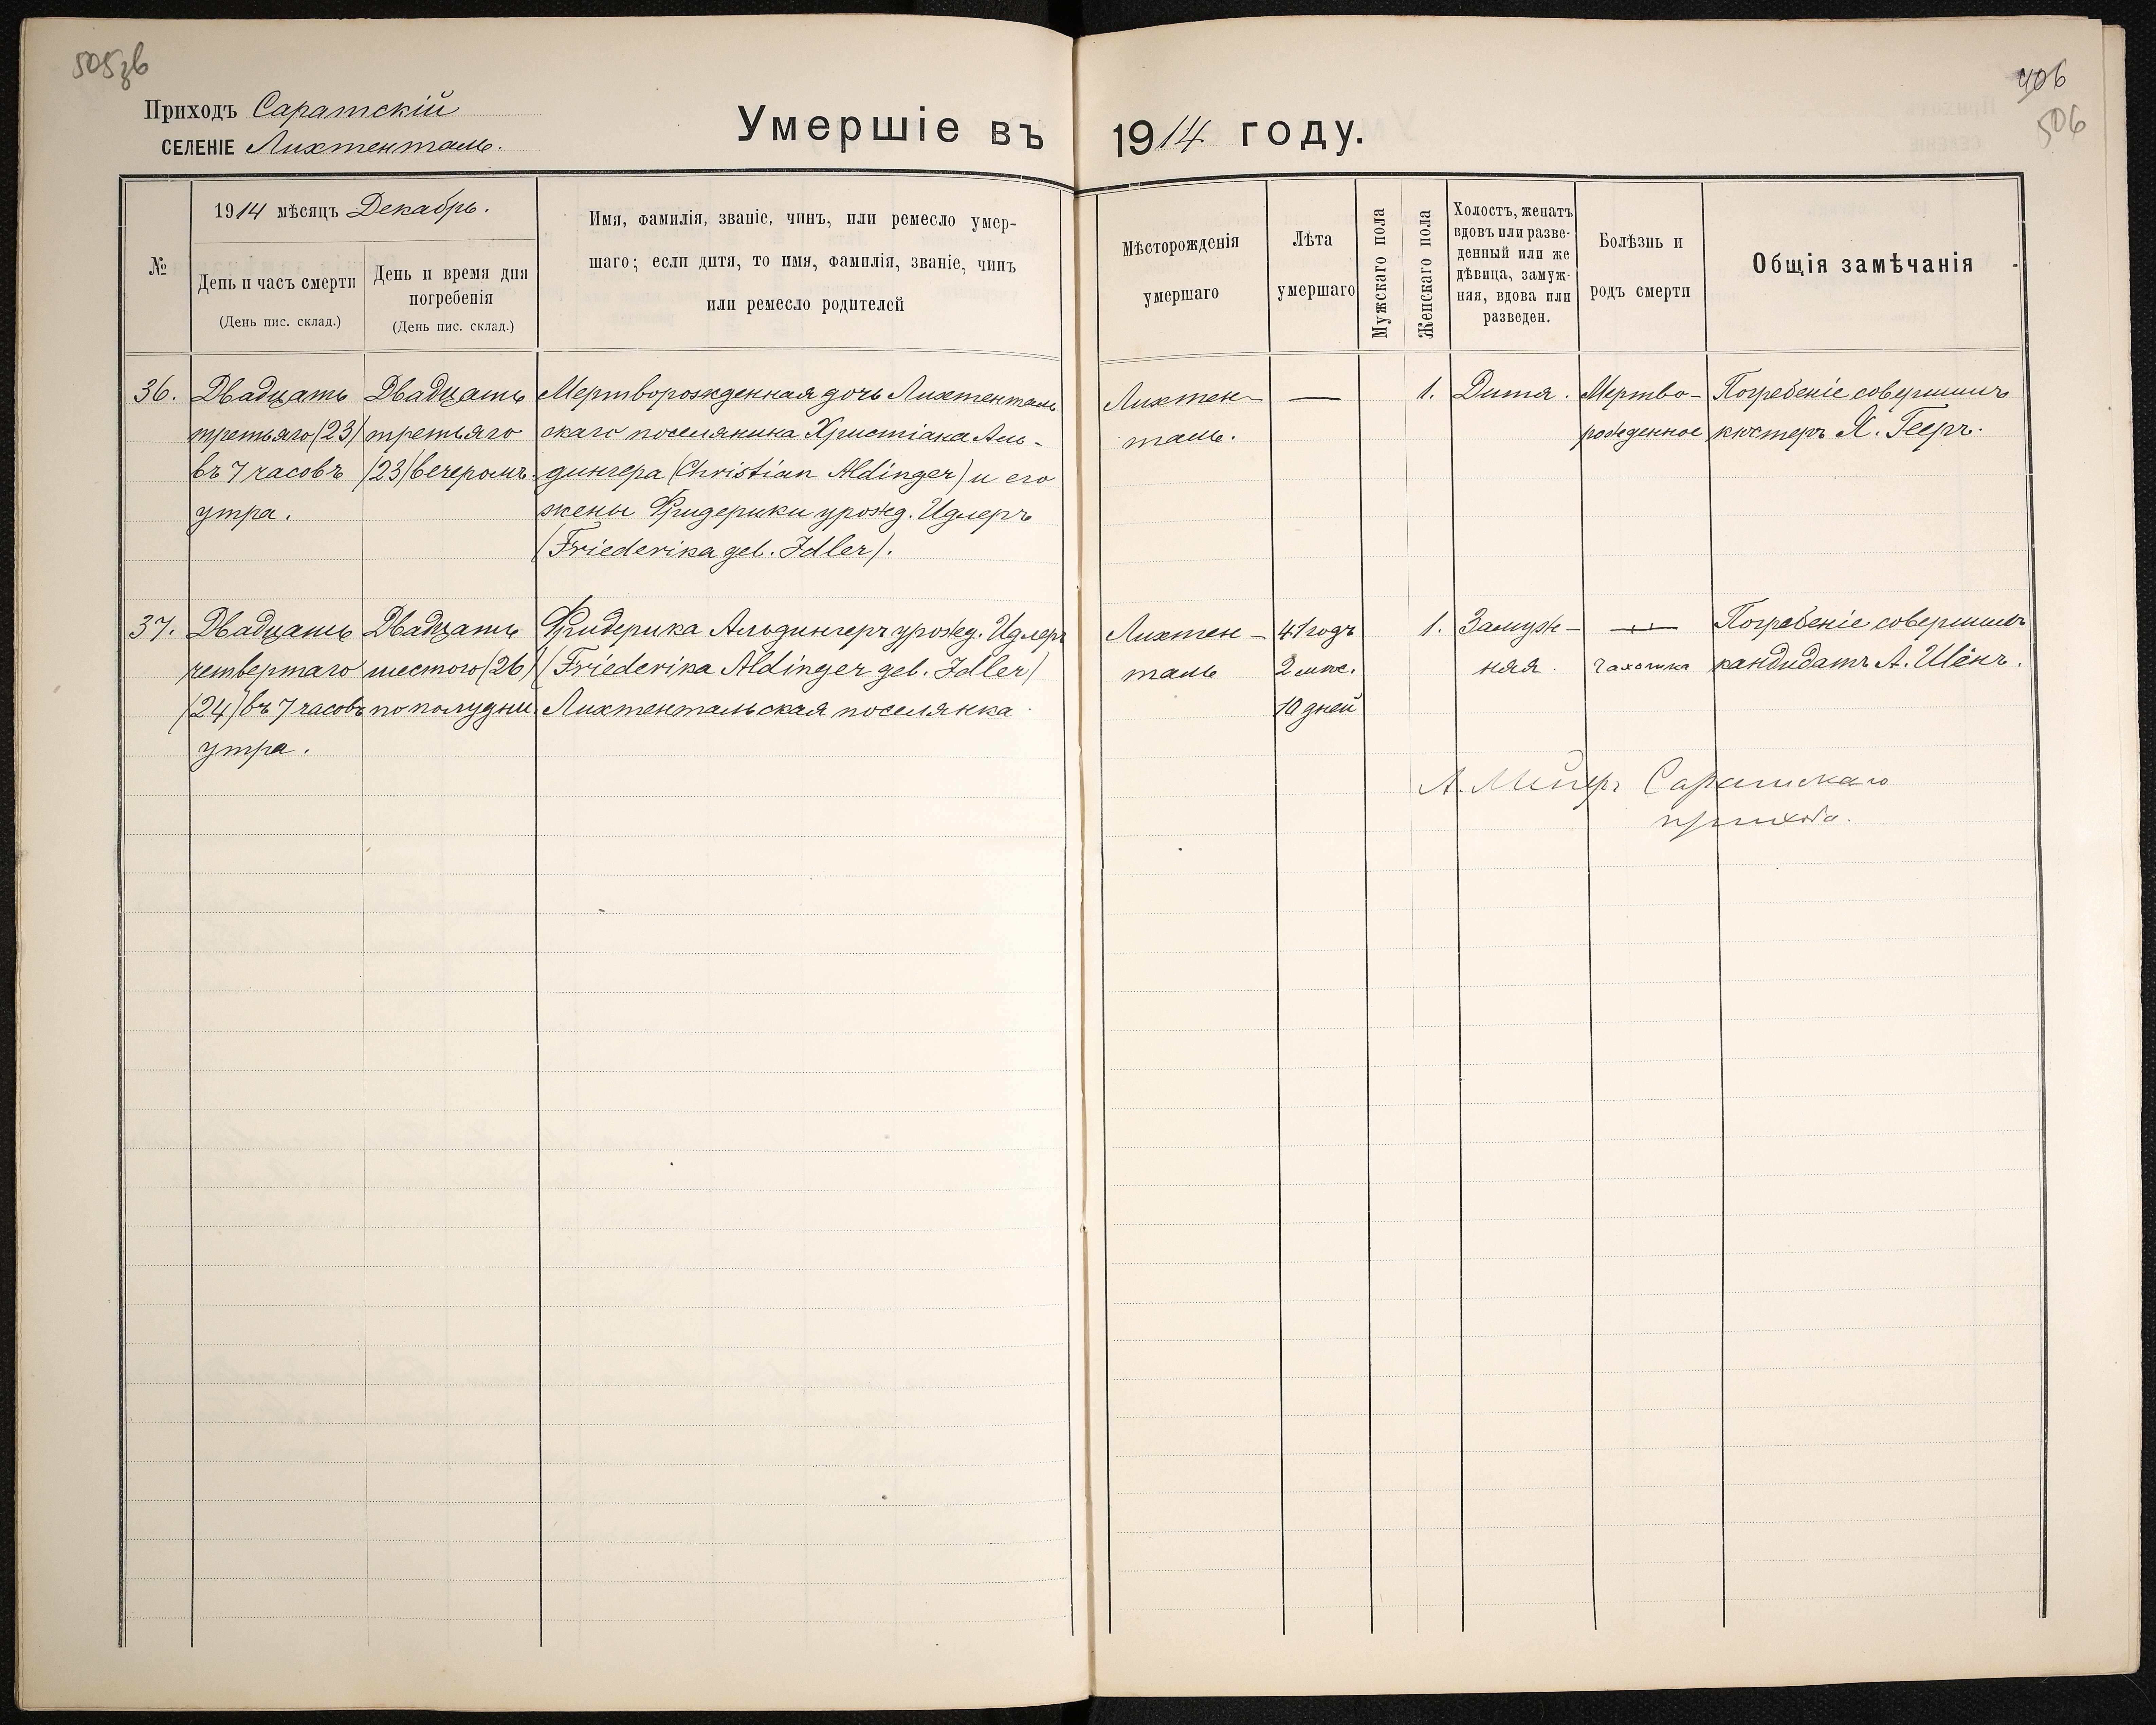 505зв
406
506
Приходъ Саратскій
СЕЛЕНІЕ Лихтенталь.
Умершіе въ 1914 году.
№
1914 мѣсяцъ Декабрь.
День и часъ смерти
(День пис. склад.)
День и время дня
погребенія
(День пис. склад.)
Имя, фамилія, званіе, чинъ, или ремесло умер-
шаго; если дитя, то имя, фамилія, званіе, чинъ
или ремесло родителей
Мѣсторожденія
умершаго
Лѣта
умершаго
Мужскаго пола
Женскаго пола
Холостъ, женатъ
вдовъ или разве-
денный или же
дѣвица, замуж-
няя, вдова или
разведен.
Болѣзнь и
родъ смерти
Общія замѣчанія
36.
Двадцать
третьяго (23)
въ 7 часовъ
утра.
Двадцать
третьяго
(23) вечеромъ.
Мертворожденная дочь Лихтенталь
скаго поселянина Христіана Аль-
дингера (Christian Aldinger) и его
жены Фридерики урожд. Идлеръ
(Friederika geb. Idler).
Лихтен-
таль.
—
1.
Дитя.
Мертво-
рожденное
Погребеніе совершилъ
кюстеръ Я. Гееръ.
37.
Двадцать
четвертаго
(24) въ 7 часовъ
утра.
Двадцать
шестого (26)
по полудни.
Фридерика Альдингеръ урожд. Идлеръ
(Friederika Aldinger geb. Idler)
Лихтентальская поселянка
Лихтен-
таль
41 годъ
2 мѣс.
10 дней
1.
Замуж-
няя.
—
Чахотка
Погребеніе совершилъ
кандидатъ А. Шёнъ.
А. Мейеръ Саратскаго
прихода.